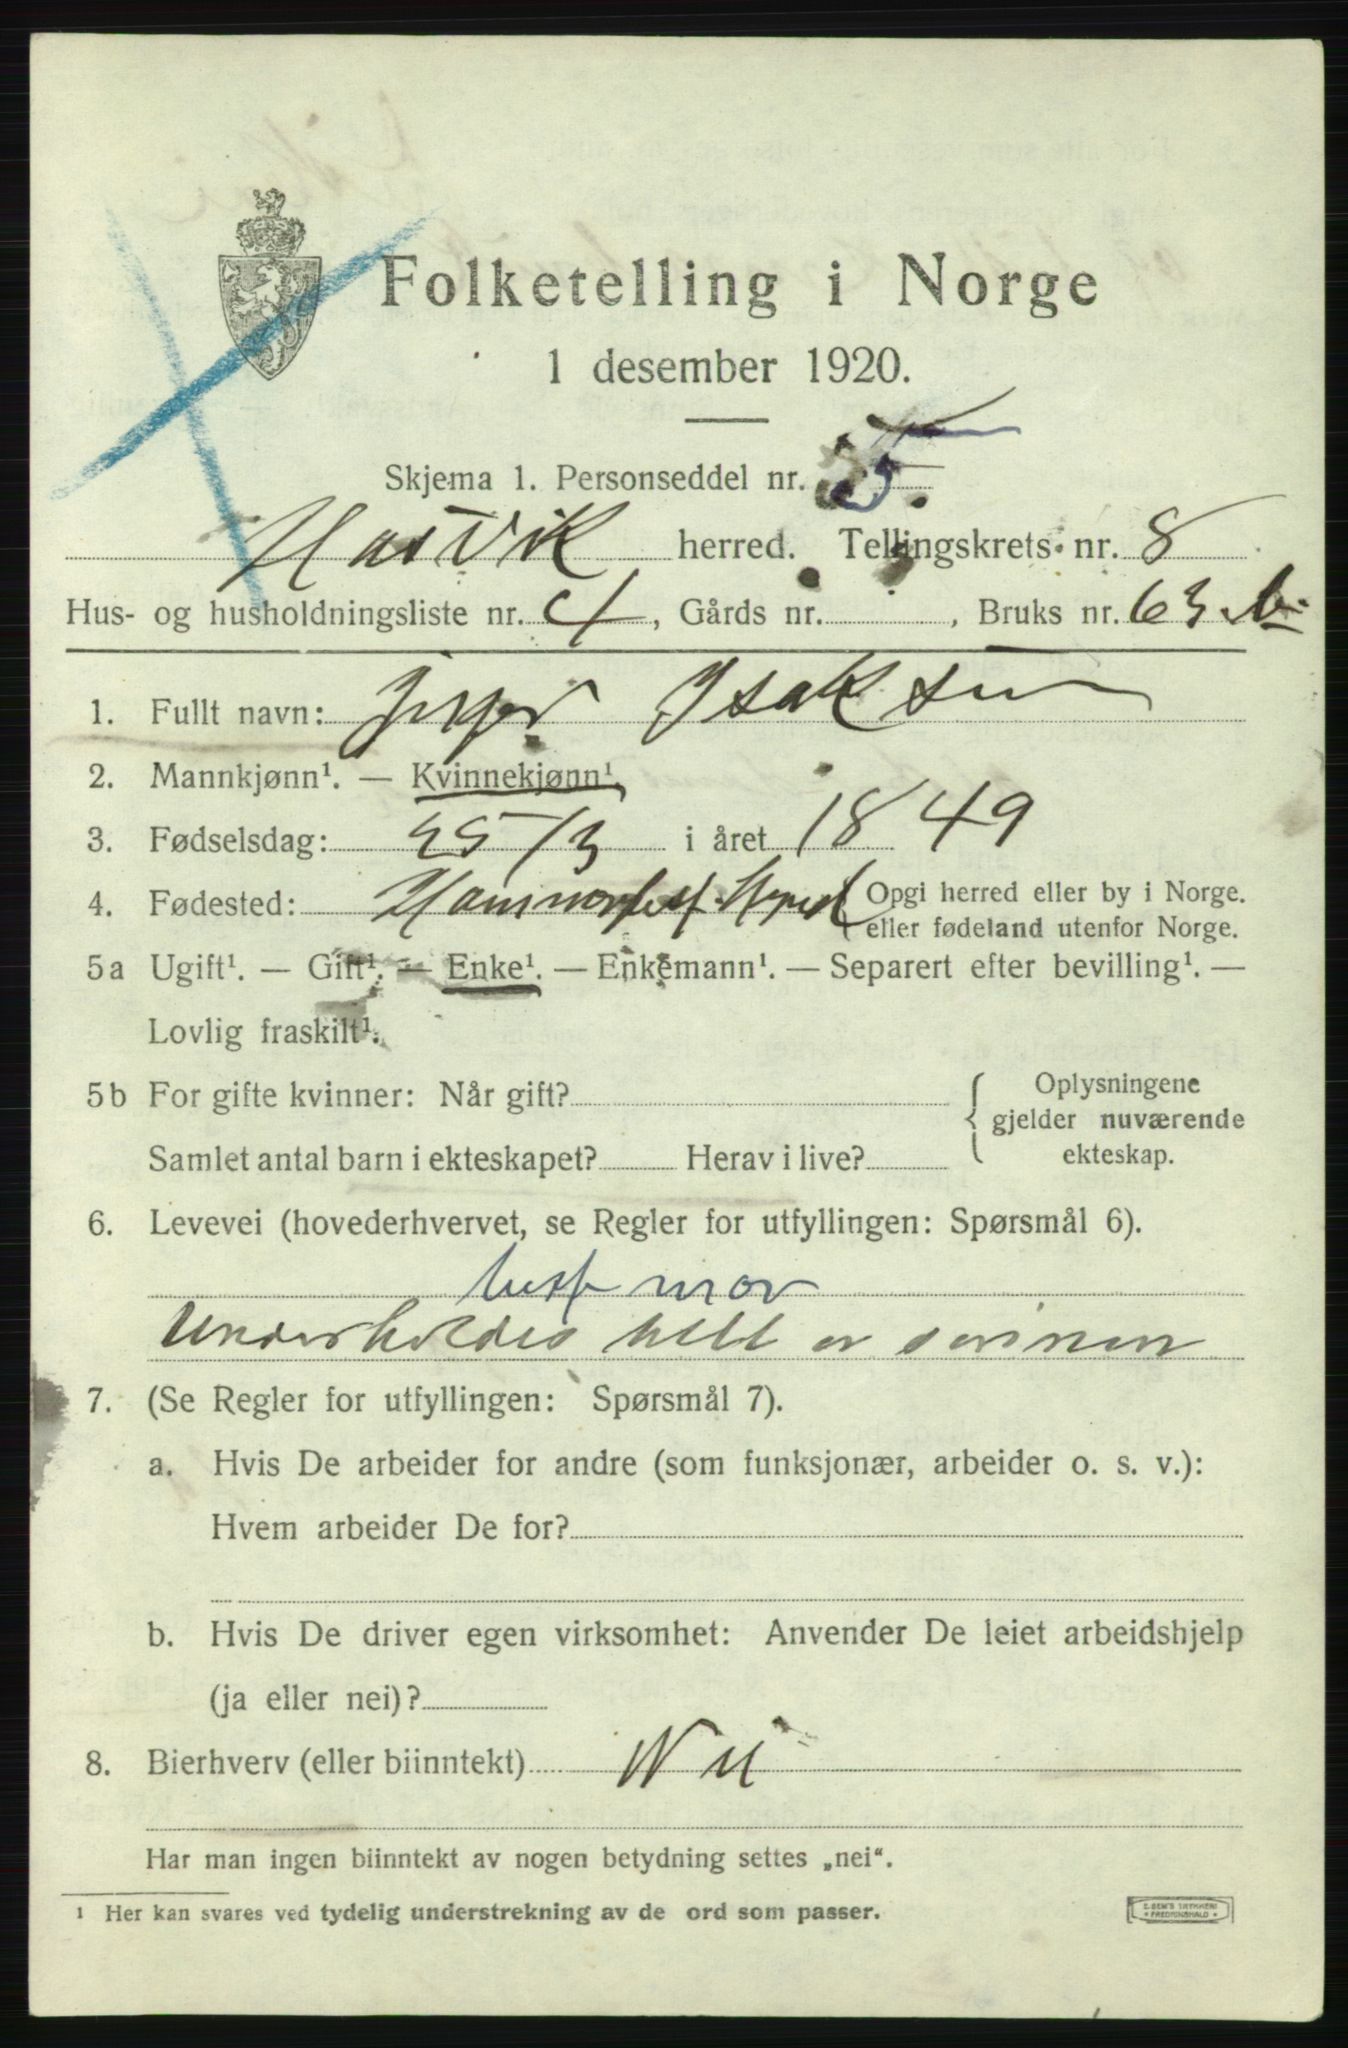 Folketelling i Norge
1 desember 1920.
Skjema 1. Personseddel nr. 5
Hasvik herred. Tellingskrets nr. 8
Hus- og husholdningsliste nr. 4, Gårds nr. , Bruks nr. 63 b.
1. Fullt navn: Isaksen
2. Mannkjønn¹. — Kvinnekjønn¹.
3. Fødselsdag: 25/3 i året 1849
4. Fødested: Hammerfest Opgi herred eller by i Norge.
eller fødeland utenfor Norge.
5a Ugift¹. — Gift¹. — Enke¹. — Enkemann¹. — Separert efter bevilling¹. —
Lovlig fraskilt¹.
5b For gifte kvinner: Når gift? Oplysningene
gjelder nuværende
Samlet antal barn i ekteskapet? Herav i live? ekteskap.
6. Levevei (hovederhvervet, se Regler for utfyllingen: Spørsmål 6).
mor
Underholdes helt av
7. (Se Regler for utfyllingen: Spørsmål 7).
a. Hvis De arbeider for andre (som funksjonær, arbeider o. s. v.):
Hvem arbeider De for?
b. Hvis De driver egen virksomhet: Anvender De leiet arbeidshjelp
(ja eller nei)?
8. Bierhverv (eller biinntekt) Nei
Har man ingen biinntekt av nogen betydning settes „nei“.
¹ Her kan svares ved tydelig understrekning av de ord som passer.
E. SEM'S TRYKKERI
FREDRIKSHALD